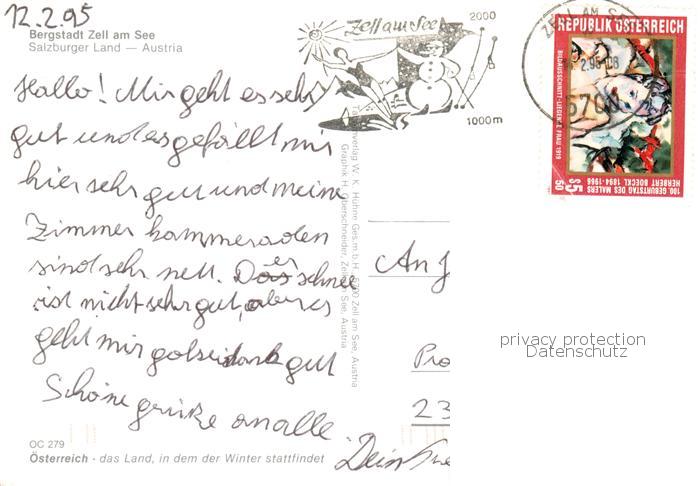 12.2.95
Bergstadt Zell am See
Salzburger Land — Austria
Hallo! Mir geht es sehr
gut und es gefällt mir
hier sehr gut und meine
Zimmer kammeraden
sind sehr nett. Das er schnee
ist nicht sehr gut, aber es
geht mir gotseidank gut
Schöne grüße an alle
Dein
OC 279
Österreich - das Land, in dem der Winter stattfindet
verlag W. K. Hühne Ges.m.b.H. 5700 Zell am See, Austria
Graphik H. Oberschneider, Zell am See, Austria
Zell am See
2000
1000m
ZELL AM SEE
2.95-18
5700
REPUBLIK ÖSTERREICH
BILDAUSSCHNITT-LIEGENDE FRAU 1919
100. GEBURTSTAG DES MALERS
HERBERT BOECKL 1894-1966
S5 50
An J
Pro
23
privacy protection
Datenschutz